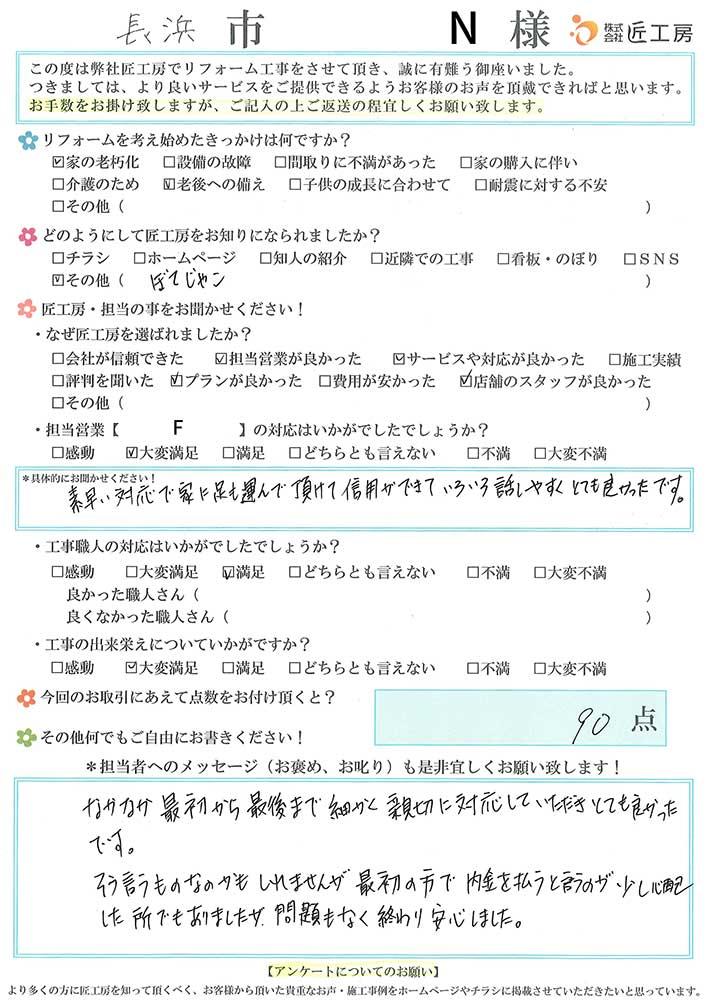 長浜 市 N 様 株式会社 匠工房
この度は弊社匠工房でリフォーム工事をさせて頂き、誠に有難う御座いました。
つきましては、より良いサービスをご提供できるようお客様のお声を頂戴できればと思います。
お手数をお掛け致しますが、ご記入の上ご返送の程宜しくお願い致します。
リフォームを考え始めたきっかけは何ですか？
☑家の老朽化 □設備の故障 □間取りに不満があった □家の購入に伴い
□介護のため ☑老後への備え □子供の成長に合わせて □耐震に対する不安
□その他（ ）
どのようにして匠工房をお知りになられましたか？
□チラシ □ホームページ □知人の紹介 □近隣での工事 □看板・のぼり □ＳＮＳ
☑その他（ ぼてじゃこ ）
匠工房・担当の事をお聞かせください！
・なぜ匠工房を選ばれましたか？
□会社が信頼できた ☑担当営業が良かった ☑サービスや対応が良かった □施工実績
□評判を聞いた ☑プランが良かった □費用が安かった ☑店舗のスタッフが良かった
□その他（ ）
・担当営業【 F 】の対応はいかがでしたでしょうか？
□感動 ☑大変満足 □満足 □どちらとも言えない □不満 □大変不満
＊具体的にお聞かせください！
素早い対応で家に足も運んで頂けて信用ができていろいろ話しやすくとても良かったです。
・工事職人の対応はいかがでしたでしょうか？
□感動 □大変満足 ☑満足 □どちらとも言えない □不満 □大変不満
良かった職人さん（ ）
良くなかった職人さん（ ）
・工事の出来栄えについていかがですか？
□感動 ☑大変満足 □満足 □どちらとも言えない □不満 □大変不満
今回のお取引にあえて点数をお付け頂くと？
90 点
その他何でもご自由にお書きください！
＊担当者へのメッセージ（お褒め、お叱り）も是非宜しくお願い致します！
なかなか最初から最後まで細かく親切に対応していただきとても良かった
です。
そう言うものなのかもしれませんが最初の方で内金を払うと言うのが少し心配
した所でもありましたが、問題もなく終わり安心しました。
【アンケートについてのお願い】
より多くの方に匠工房を知って頂くべく、お客様から頂いた貴重なお声・施工事例をホームページやチラシに掲載させていただきたいと思っています。